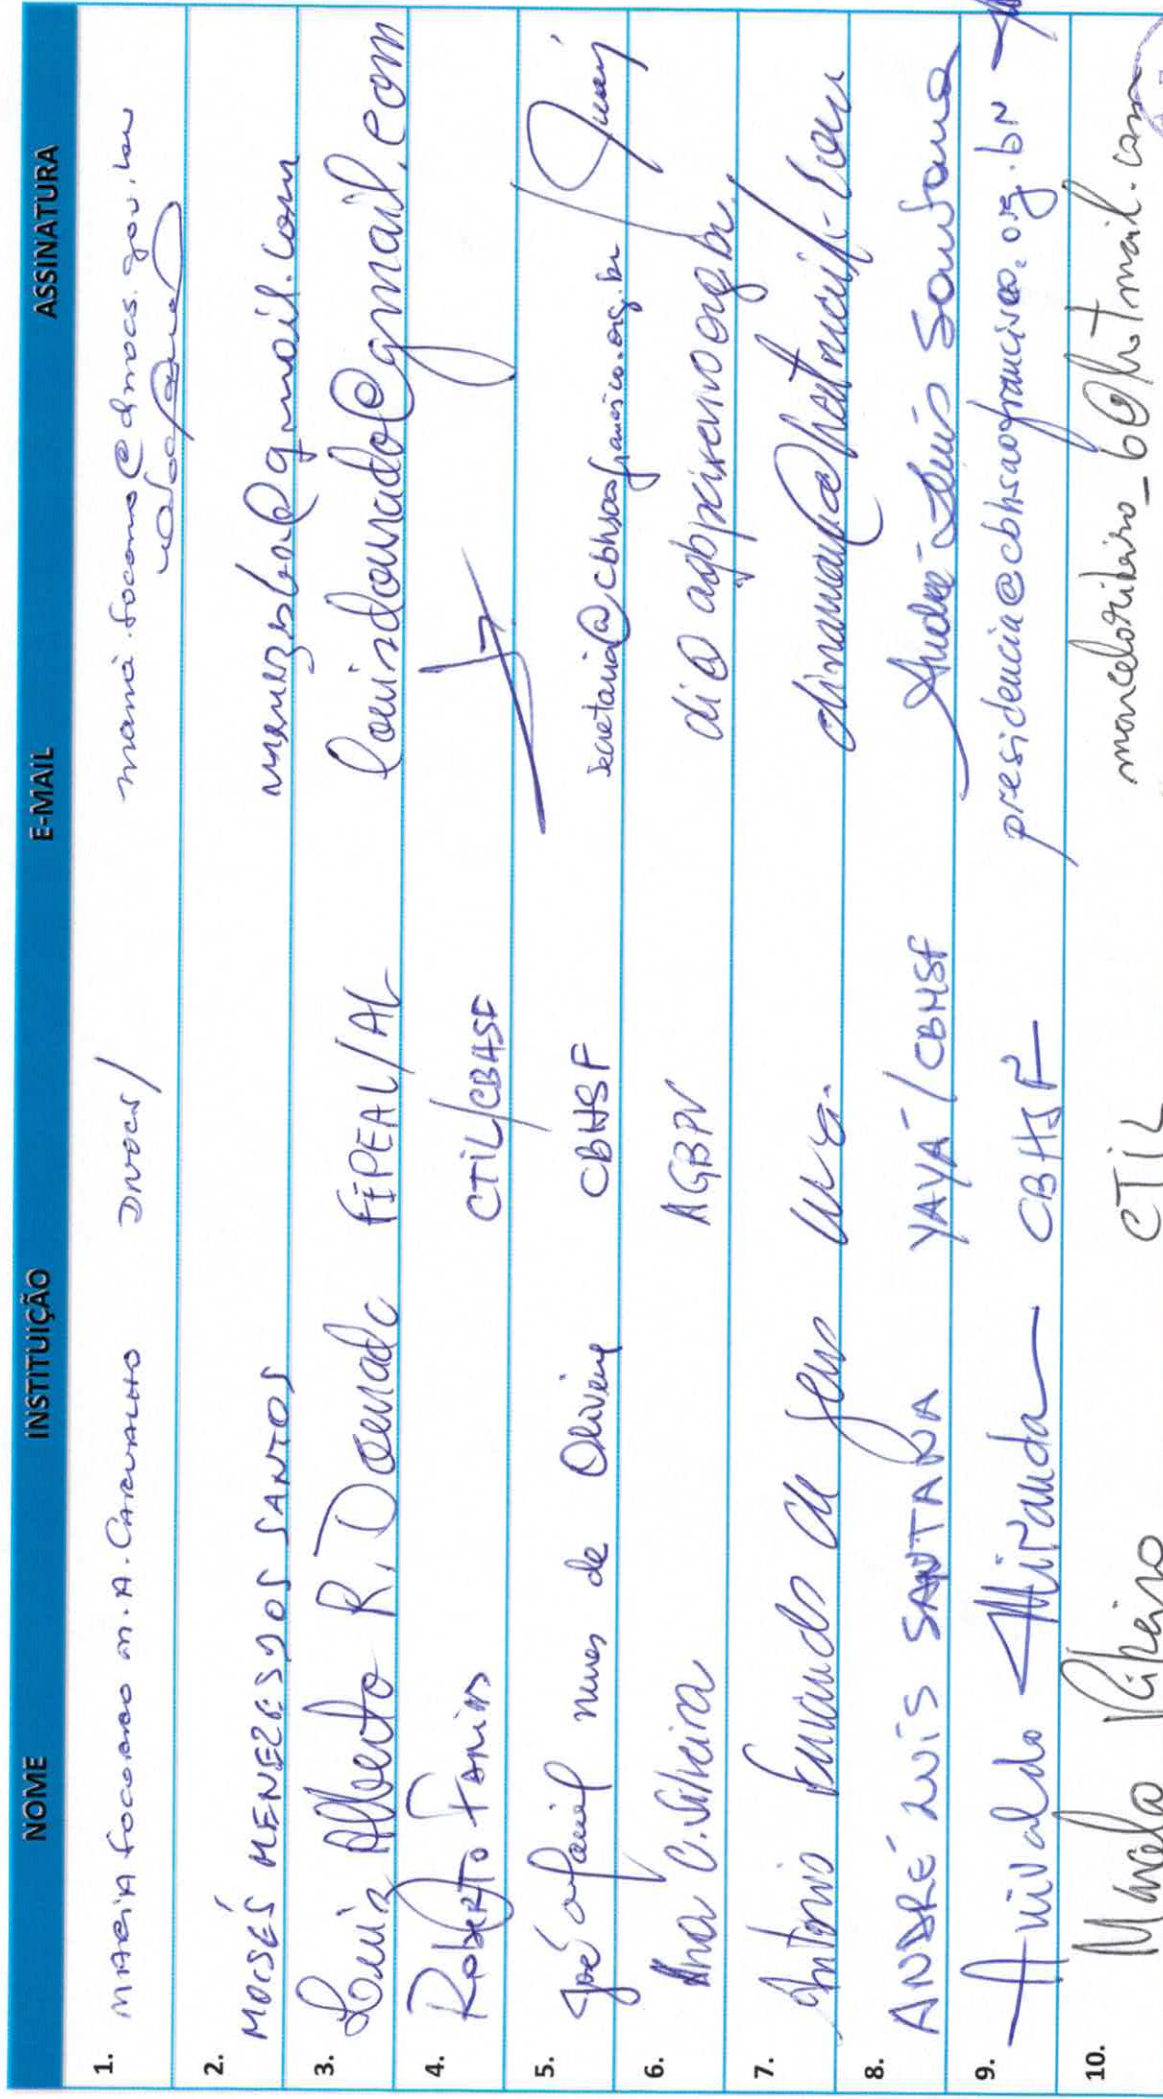 NOME INSTITUIÇÃO E-MAIL ASSINATURA
1. MARIA M. A. CARVALHO
2. MOISÉS MENEZES DOS SANTOS @gmail.com
3. Luiz Alberto R. Dourado FEPEAL/AL louisdourado@gmail.com
4. Roberto Farias CTIL/CBHSF
5. José Maciel Nunes de Oliveira CBHSF secretaria@cbhsaofrancisco.org.br
6. Ana C. Silveira AGBPV di@agbpeixevivo.org.br
7. Antonio de Jesus
8. ANDRÉ LUÍS SANTANA YAYÁ/CBHSF André Luís Santana
9. Anivaldo Miranda CBHSF presidencia@cbhsaofrancisco.org.br
10. Marcelo Ribeiro CTIL marceloribeiro_6@hotmail.com